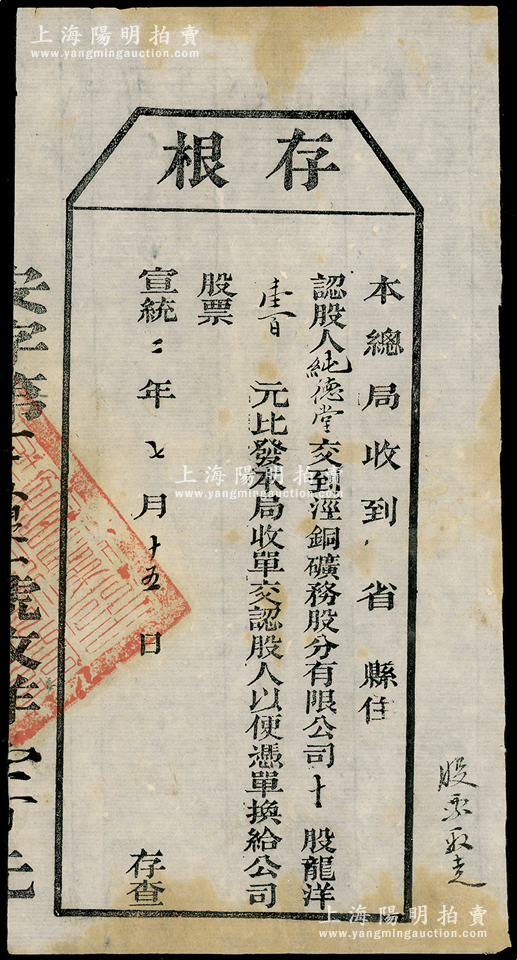 上海陽明拍賣
www.yangmingauction.com
存根
本總局收到 省 縣住
認股人純德堂交到涇銅礦務股分有限公司十 股龍洋
壹百 元比發本局收單交認股人以便憑單換給公司
股票
宣統二年七月十五日 存查
股票取走
上海陽明拍賣
www.yangmingauction.com
上海陽明拍賣
www.yangmingauction.com